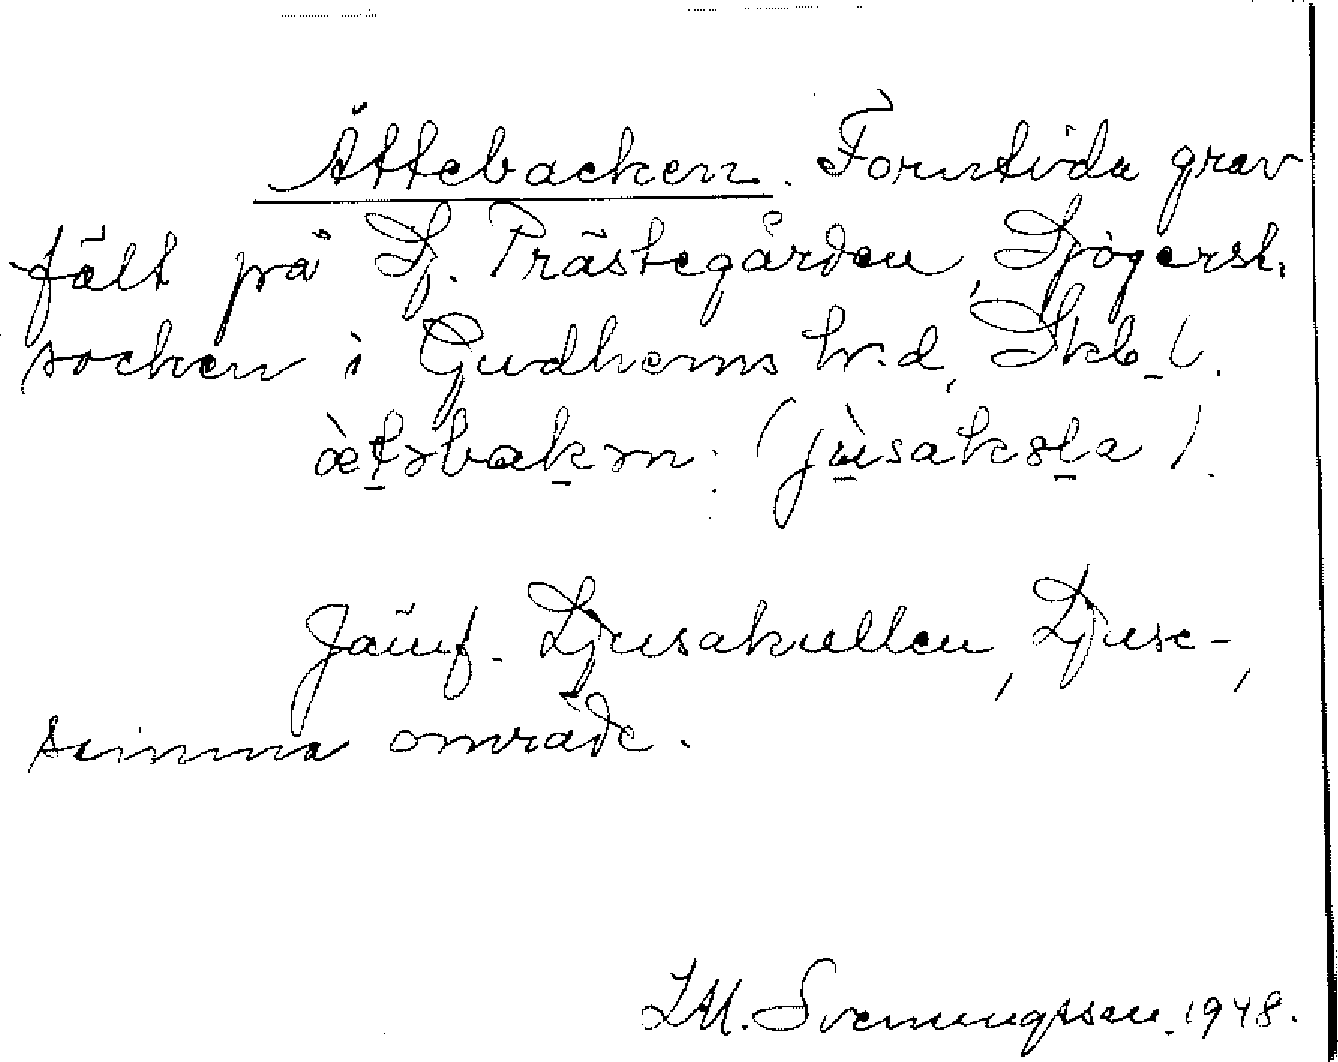 Ättebacken. Forntida grav
fält på Sj. Prästegården, Sjögerst.
socken i Gudhems hr.d, Skb. l.
ætəbakən: (jùsakəla).
Jämf. Ljusakullen, Ljuse-,
samma område.
J.M. Svenungsson. 1948.